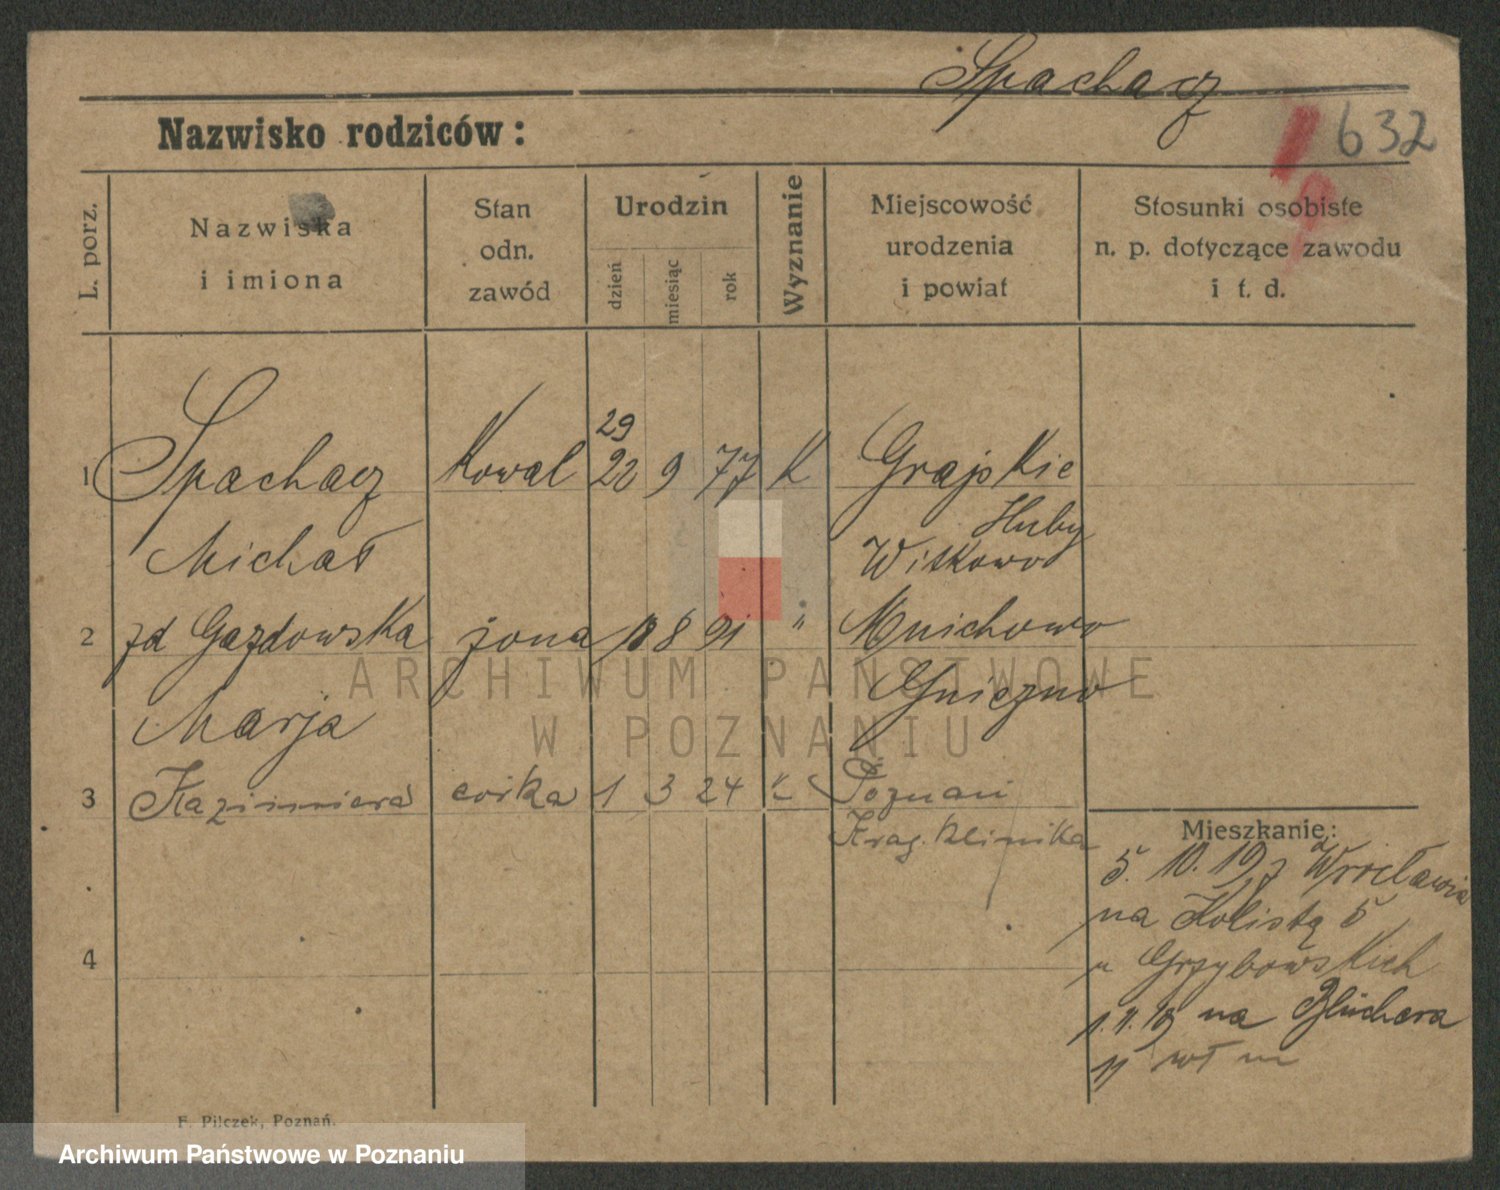 Spachacz
Nazwisko rodziców:
632
L. porz.
Nazwiska
i imiona
Stan
odn.
zawód
Urodzin
dzień
miesiąc
rok
Wyznanie
Miejscowość
urodzenia
i powiat
Stosunki osobiste
n. p. dotyczące zawodu
i t. d.
29
1 Spachacz Kowal 22 9 77 K Grajskie
Huby
Michał Witkowo
2 zd Gazdowska żona 18 8 91 " Mnichowo
Gniezno
Marja
3 Kazimiera córka 1 3 24 " Poznań
Krag. Klinika
4
Mieszkanie:
5. 10. 19 z Wrocławia
na Kolistą 5
u Grzybowskich
na Blüchera
11 wł m
F. Pilczek, Poznań.
ARCHIWUM PAŃSTWOWE
W POZNANIU
Archiwum Państwowe w Poznaniu